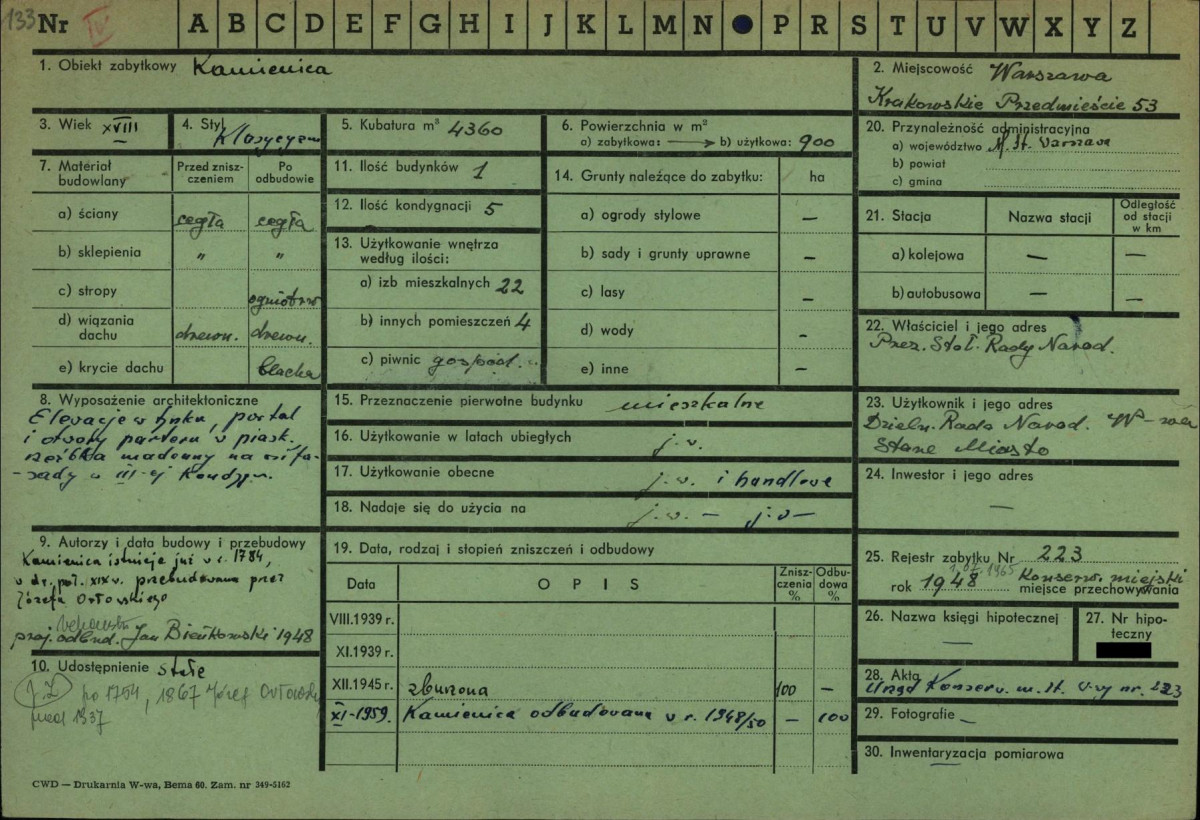 133
Nr IV A B C D E F G H I J K L M N P R S T U V W X Y Z
1. Obiekt zabytkowy Kamienica
2. Miejscowość Warszawa
Krakowskie Przedmieście 53
3. Wiek XVIII
4. Styl Klasycyzm
5. Kubatura m³ 4360
6. Powierzchnia w m²
a) zabytkowa: → b) użytkowa: 900
20. Przynależność administracyjna
a) województwo M. St. Warszawa
b) powiat
c) gmina
7. Materiał budowlany
Przed zniszczeniem
Po odbudowie
a) ściany cegła cegła
b) sklepienia " "
c) stropy ogniotrw
d) wiązania dachu drewn. drewn.
e) krycie dachu blacha
11. Ilość budynków 1
12. Ilość kondygnacji 5
13. Użytkowanie wnętrza
według ilości:
a) izb mieszkalnych 22
b) innych pomieszczeń 4
c) piwnic gospod.
14. Grunty należące do zabytku: ha
a) ogrody stylowe —
b) sady i grunty uprawne —
c) lasy —
d) wody —
e) inne —
21. Stacja Nazwa stacji Odległość od stacji w km
a) kolejowa — —
b) autobusowa — —
22. Właściciel i jego adres
Prez. Stoł. Rady Narod.
8. Wyposażenie architektoniczne
Elewacje w tynku, portal
i otwory parteru w piask.
rzeźba madonny na osi fa-
-sady w III-ej Kondygn.
15. Przeznaczenie pierwotne budynku mieszkalne
16. Użytkowanie w latach ubiegłych j.w.
17. Użytkowanie obecne j.w. i handlowe
18. Nadaje się do użycia na j.w. — j.w —
23. Użytkownik i jego adres
Dzieln. Rada Narod. W-wa
Stare Miasto
24. Inwestor i jego adres
—
9. Autorzy i data budowy i przebudowy
Kamienica istnieje już w r. 1784,
w dr. poł. XIX w. przebudowana przez
Józefa Orłowskiego
proj. odbud. Jan Bieńkowski 1948
10. Udostępnienie stałe
po 1754, 1867 Józef Orłowski
przed 1337
19. Data, rodzaj i stopień zniszczeń i odbudowy
Data OPIS Zniszczenia % Odbudowa %
VIII.1939 r.
XI.1939 r.
XII.1945 r. zburzona 100 —
XI-1959. Kamienica odbudowana w r. 1948/50 — 100
25. Rejestr zabytku Nr 223
1965
rok 1948 Konserw. miejski
miejsce przechowywania
26. Nazwa księgi hipotecznej
—
27. Nr hipoteczny
28. Akta
Urząd Konserw. m. st. W-wy nr. 223
29. Fotografie —
30. Inwentaryzacja pomiarowa
—
CWD — Drukarnia W-wa, Bema 60. Zam. nr 349-5162